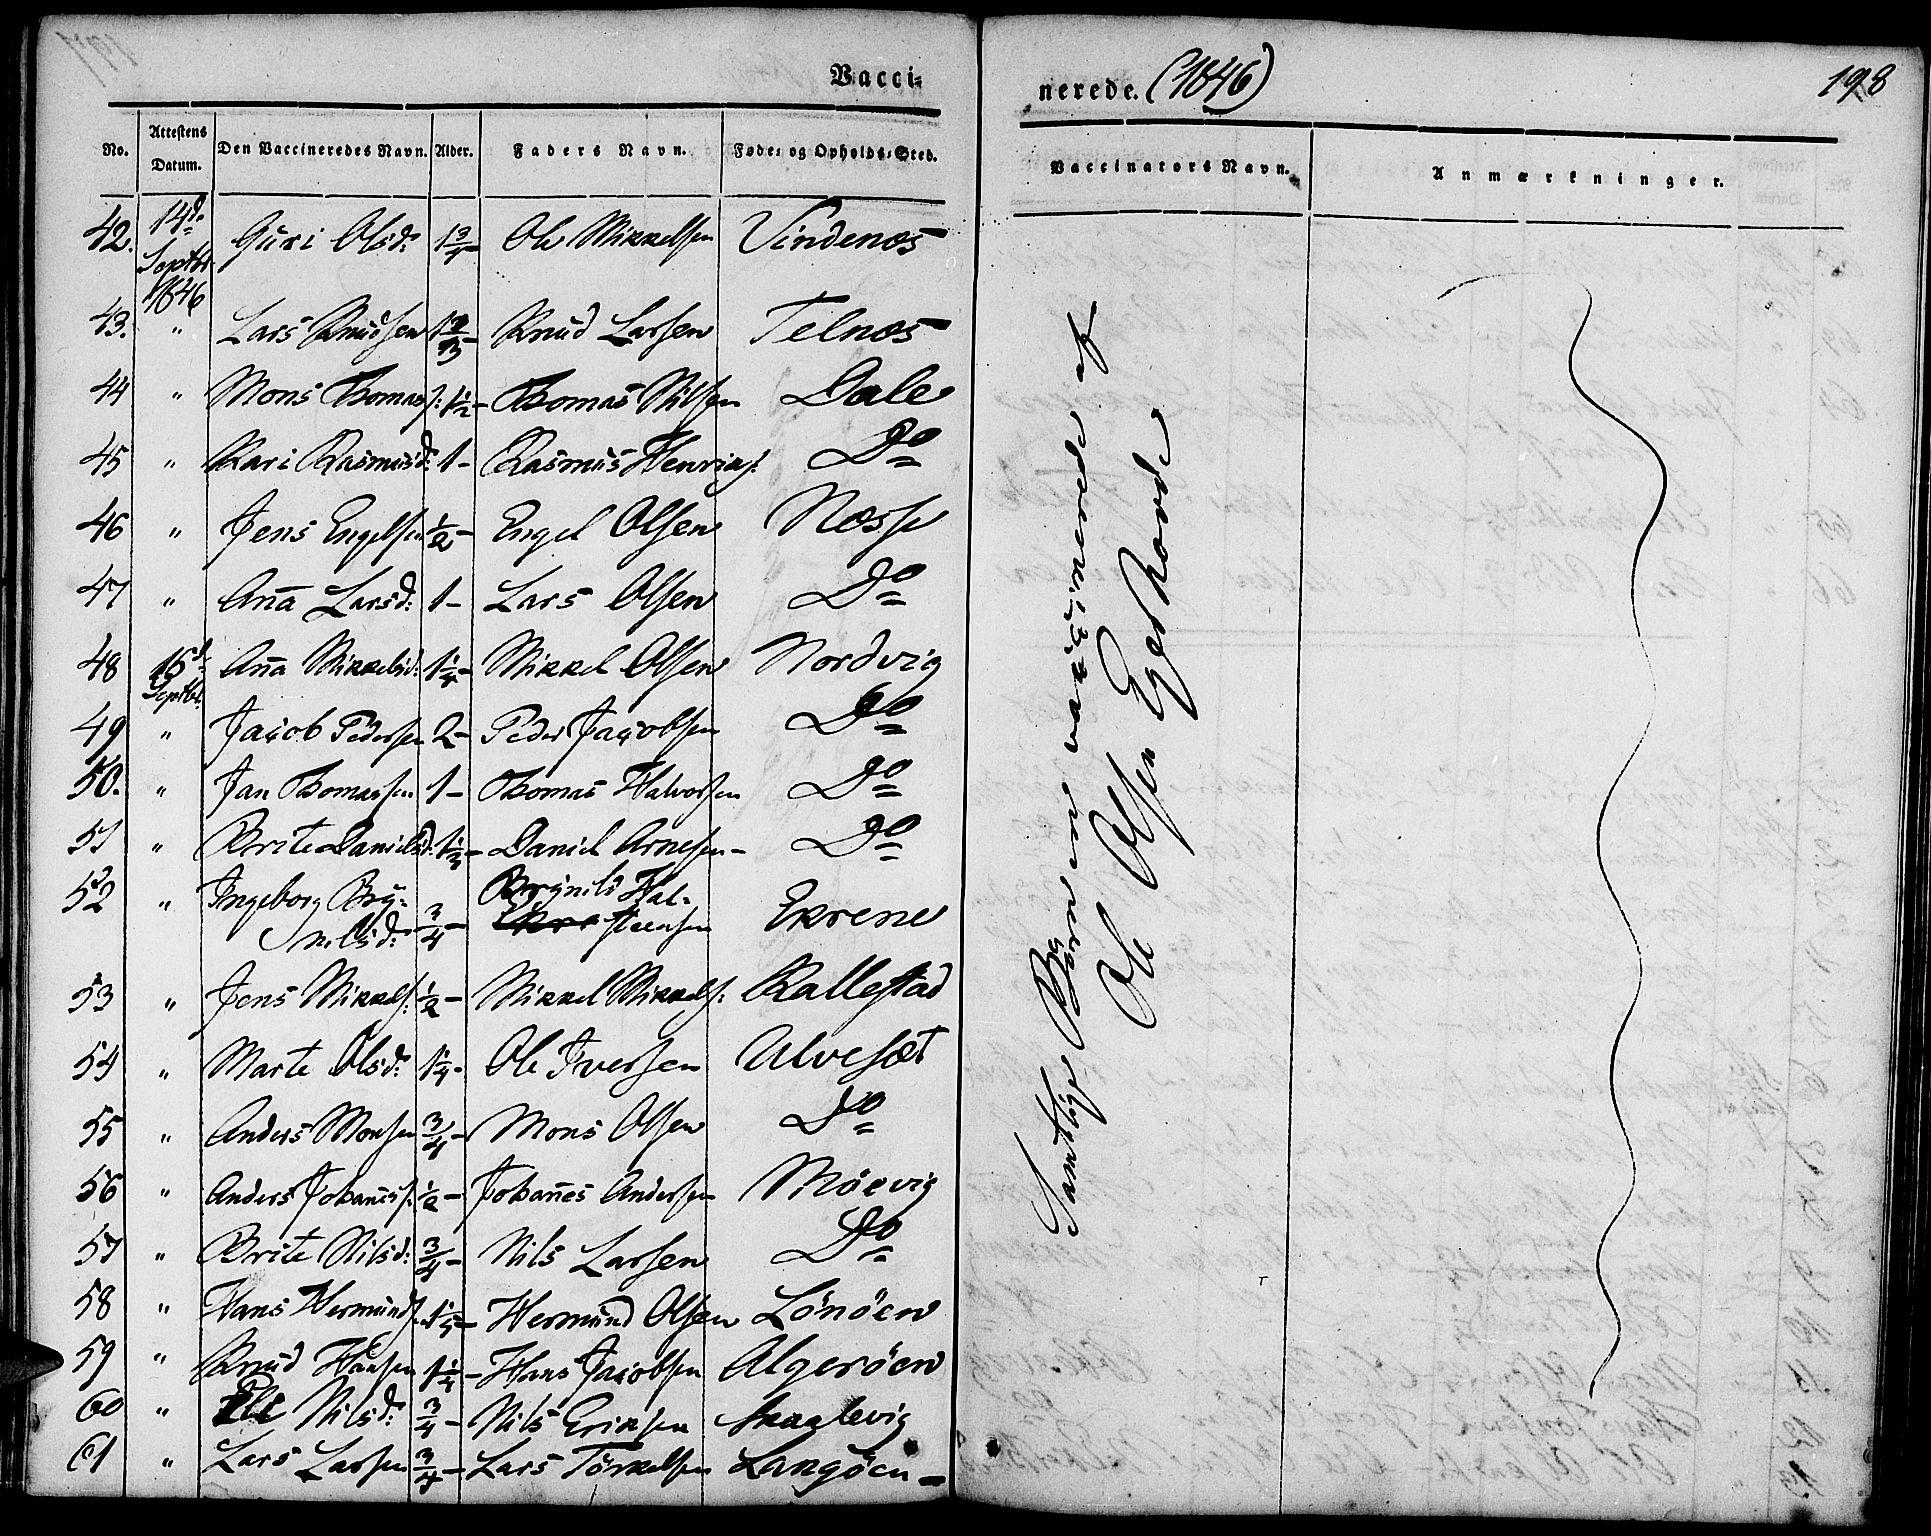 Vacci-
nerede. (1846)
198
No. Attestens Datum. Den Vaccineredes Navn. Alder. Faders Navn. Føde- og Opholds-Sted.
Vaccinators Navn. Anmærkninger.
42. 14d. Septbr 1846 Guri Olsd: 1 3/4 Ole Mikkelsen Vindenæs
43. " Lars Knudsen Knud Larsen Telnæs
44 " Mons Thomass: 1 1/2 - Thomas Nilsen Dale
45 " Kari Rasmusd: 1 - Rasmus Henriks: Do
46 " Jens Engelsen 1/2 - Engel Olsen Næsse
47 " Aña Larsd: 1 - Lars Olsen Do
48 Septbr. Aña Mikkelsd: 1 1/4 - Mikkel Olsen Nordvig
49 " Jacob Pedersen 2 - Peder Jacobsen Do
50. " Jan Thomassen 1 - Thomas Halvorsen Do
51 " Brite Danielsd: 1 1/3 - Daniel Arnesen - Do
52 " Ingeborg Bry-
nilsd: 3/4 - Brynild Hal-
steensen Ekrene
53 " Jens Mikkels: 1/2 - Mikkel Mikkels: Kallestad
54 " Marte Olsd: 1 1/4 - Ole Iversen Ulvesæt
55 " Anders Monsen 3/4 - Mons Olsen Do
56 " Anders Johañess: 1/2 - Johañes Andersen Møevig
57 " Brite Nilsd: 3/4 - Nils Larsen Do
58 " Hans Hermunds: Hermund Olsen Lønøen
59 " Knud Hansen 1 1/4 - Hans Jacobsen Algerøen
60 " Nilsd: 3/4 - Nils Eriksen Skaglevig
61 " Lars Larsen 3/4 - Lars Tørkelsen Langøen -
Samtlige Børn ere vaccinerede af
Ole Olsen Eger Kovde